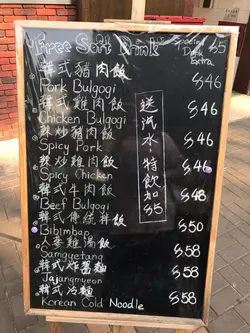 Free Soft Drink
Special Drink Extra $5
韓式豬肉飯 $46
Pork Bulgogi
韓式雞肉飯 $46
Chicken Bulgogi
辣炒豬肉飯 $46
Spicy Pork
辣炒雞肉飯 $46
Spicy Chicken
韓式牛肉飯 $48
Beef Bulgogi
韓式傳統拌飯 $50
Bibimbap
人參雞湯飯 $58
Samgyetang
韓式炸醬麵 $58
Jajangmyeon
韓式冷麵 $58
Korean Cold Noodle
送汽水特飲加$5